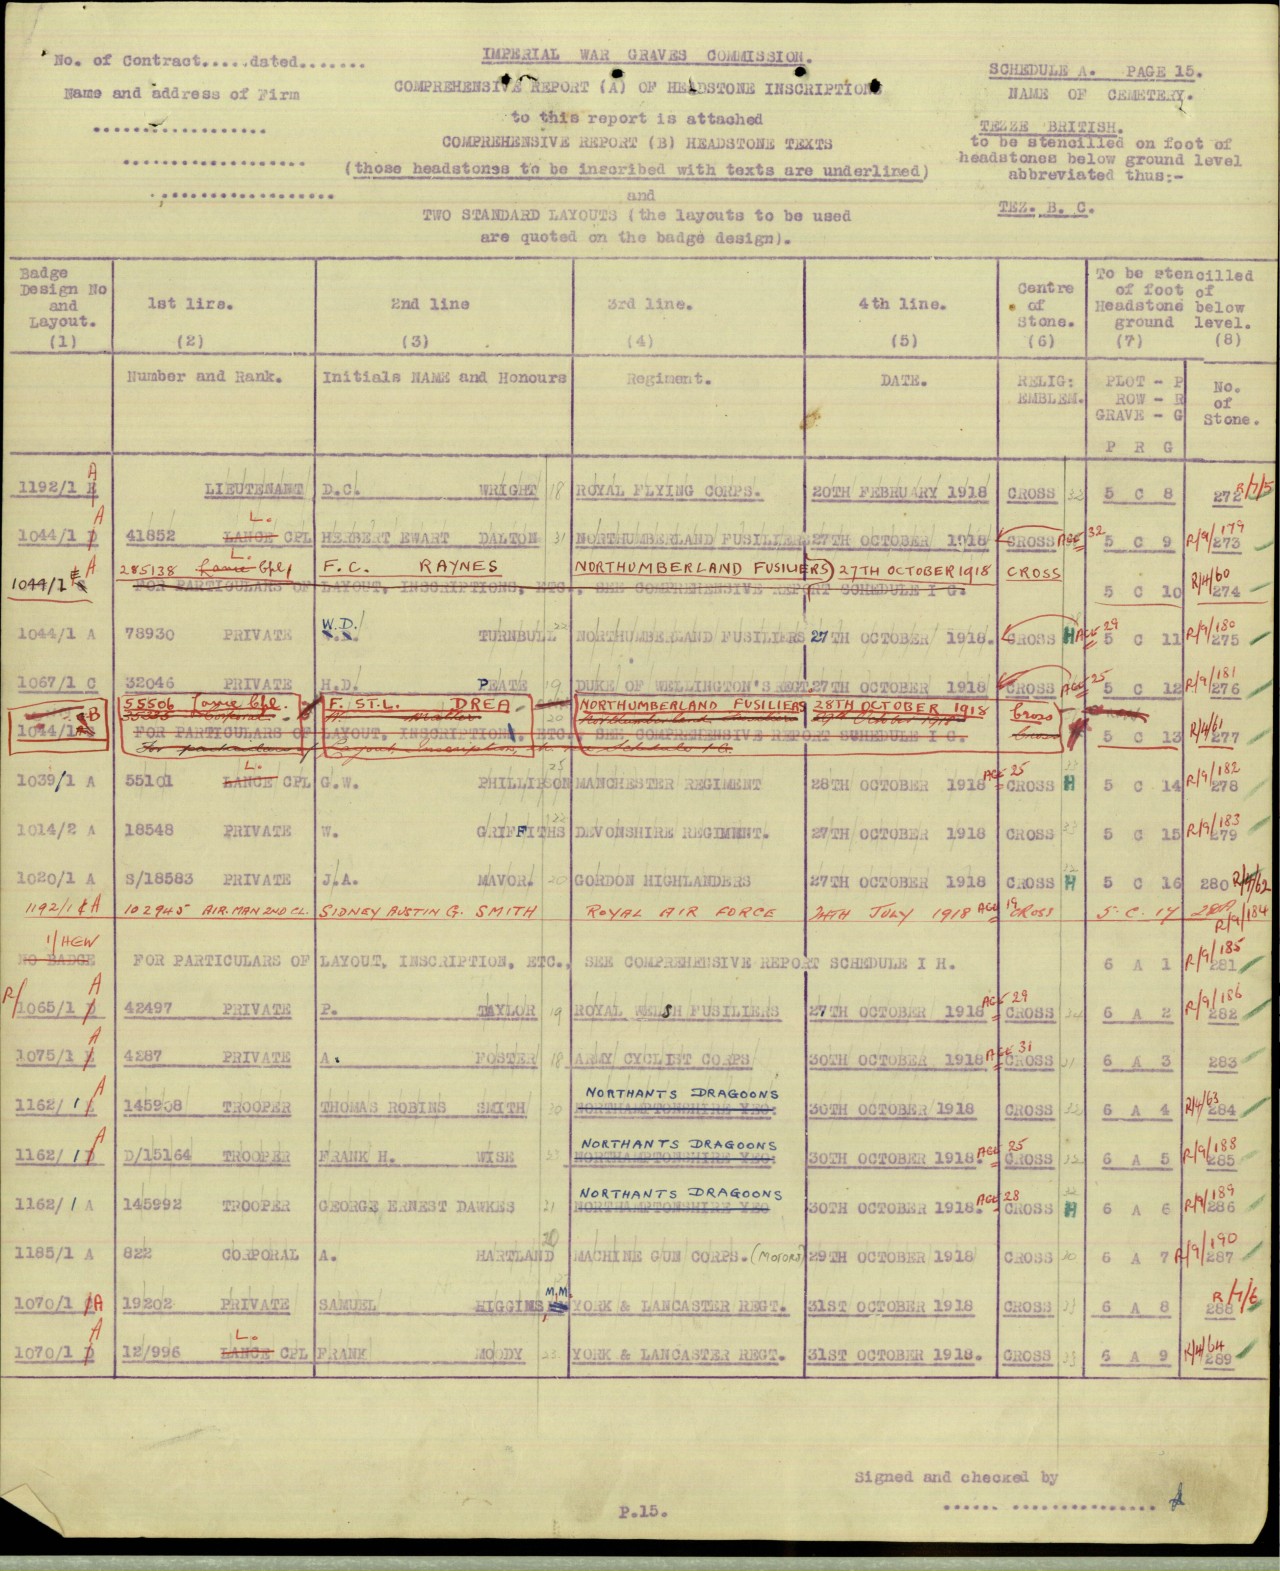 No. of Contract.....dated.......
Name and address of Firm
IMPERIAL WAR GRAVES COMMISSION.
COMPREHENSIVE REPORT (A) OF HEADSTONE INSCRIPTIONS
to this report is attached
COMPREHENSIVE REPORT (B) HEADSTONE TEXTS
(those headstones to be inscribed with texts are underlined)
and
TWO STANDARD LAYOUTS (the layouts to be used
are quoted on the badge design).
SCHEDULE A. PAGE 15.
NAME OF CEMETERY.
TEZZE BRITISH.
to be stencilled on foot of
headstones below ground level
abbreviated thus:-
TEZ. B. C.
Badge Design No and Layout. (1)
1st lire. (2)
2nd line (3)
3rd line. (4)
4th line. (5)
Centre of Stone. (6)
To be stencilled of foot of Headstone below ground level. (7) (8)
Number and Rank.
Initials NAME and Honours
Regiment.
DATE.
RELIG: EMBLEM.
PLOT - P ROW - R GRAVE - G
P R G
No. of Stone.
1192/1 A LIEUTENANT D.C. WRIGHT 18 ROYAL FLYING CORPS. 20TH FEBRUARY 1918 CROSS 32 5 C 8 272 R/7/5
1044/1 A 41852 LANCE L. CPL HERBERT EWART DALTON 31 NORTHUMBERLAND FUSILIERS 27TH OCTOBER 1918 CROSS AGE 32 5 C 9 R/9/179 273
1044/1 A 285138 Lance L. Cpl F.C. RAYNES NORTHUMBERLAND FUSILIERS 27TH OCTOBER 1918 CROSS
FOR PARTICULARS OF LAYOUT, INSCRIPTIONS, ETC., SEE COMPREHENSIVE REPORT SCHEDULE I G. 5 C 10 R/4/60 274
1044/1 A 78930 PRIVATE W.D. TURNBULL NORTHUMBERLAND FUSILIERS 27TH OCTOBER 1918. CROSS H AGE 29 5 C 11 R/9/180 275
1067/1 C 32046 PRIVATE H.D. PEATE 19 DUKE OF WELLINGTON'S REGT. 27TH OCTOBER 1918 CROSS AGE 25 5 C 12 R/9/181 276
B 55506 Lance Cpl. F. ST.L. DREA NORTHUMBERLAND FUSILIERS 28TH OCTOBER 1918 Cross
1044/1 FOR PARTICULARS OF LAYOUT, INSCRIPTION, ETC. SEE COMPREHENSIVE REPORT SCHEDULE I G. 5 C 13 R/4/61 277
1039/1 A 55101 LANCE L. CPL G.W. PHILLIPSON 25 MANCHESTER REGIMENT 28TH OCTOBER 1918 AGE 25 CROSS H 5 C 14 R/9/182 278
1014/2 A 18548 PRIVATE W. GRIFFITHS DEVONSHIRE REGIMENT. 27TH OCTOBER 1918 CROSS 33 5 C 15 R/9/183 279
1020/1 A S/18583 PRIVATE J.A. MAVOR. 20 GORDON HIGHLANDERS 27TH OCTOBER 1918 CROSS H 5 C 16 280 R/4/62
1192/1 A 102945 AIR.MAN 2ND CL. SIDNEY AUSTIN G. SMITH ROYAL AIR FORCE 24TH JULY 1918 AGE 19 CROSS 5. C. 17 R/9/184
1/HEW
NO BADGE FOR PARTICULARS OF LAYOUT, INSCRIPTION, ETC., SEE COMPREHENSIVE REPORT SCHEDULE I H. 6 A 1 R/9/185 281
R/ 1065/1 A 42497 PRIVATE P. TAYLOR 19 ROYAL WELSH FUSILIERS 27TH OCTOBER 1918 AGE 29 CROSS 6 A 2 R/9/186 282
1075/1 A 4287 PRIVATE A. FOSTER 18 ARMY CYCLIST CORPS 30TH OCTOBER 1918 AGE 31 CROSS 31 6 A 3 283
1162/1 A 145908 TROOPER THOMAS ROBINS SMITH NORTHANTS DRAGOONS NORTHAMPTONSHIRE YEO. 30TH OCTOBER 1918 CROSS 6 A 4 R/4/63 284
1162/1 A D/15164 TROOPER FRANK H. WISE NORTHANTS DRAGOONS NORTHAMPTONSHIRE YEO. 30TH OCTOBER 1918. AGE 25 CROSS 6 A 5 R/9/188 285
1162/1 A 145992 TROOPER GEORGE ERNEST DAWKES 21 NORTHANTS DRAGOONS NORTHAMPTONSHIRE YEO 30TH OCTOBER 1918. AGE 28 CROSS H 6 A 6 R/9/189 286
1185/1 A 822 CORPORAL A. HARTLAND 20 MACHINE GUN CORPS. (MOTORS) 29TH OCTOBER 1918 CROSS 6 A 7 R/9/190 287
1070/1 A 19202 PRIVATE SAMUEL HIGGINS, M.M. YORK & LANCASTER REGT. 31ST OCTOBER 1918 CROSS 33 6 A 8 R/7/6 288
1070/1 A 12/996 LANCE L. CPL FRANK MOODY 23 YORK & LANCASTER REGT. 31ST OCTOBER 1918. CROSS 33 6 A 9 R/4/64 289
Signed and checked by
P.15.